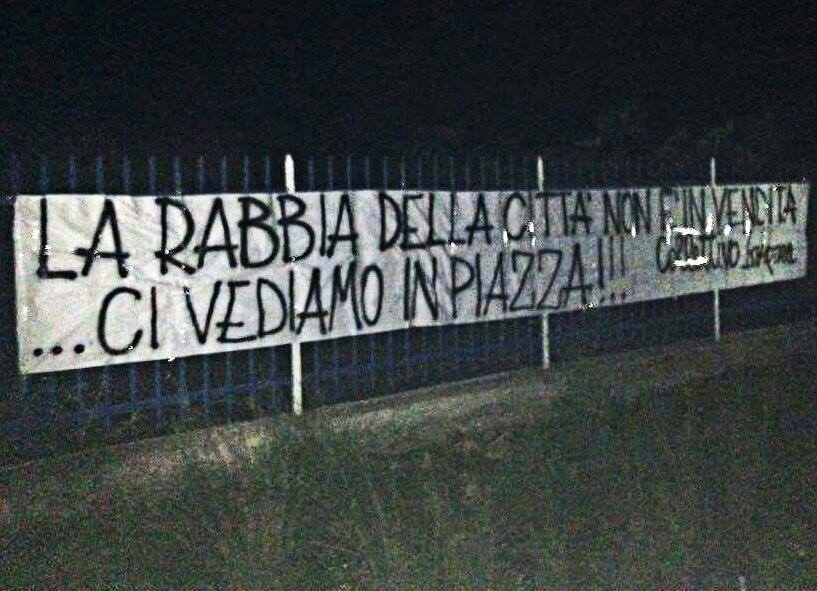 LA RABBIA DELLA CITTA' NON E' IN VENDITA
...CI VEDIAMO IN PIAZZA!!!...